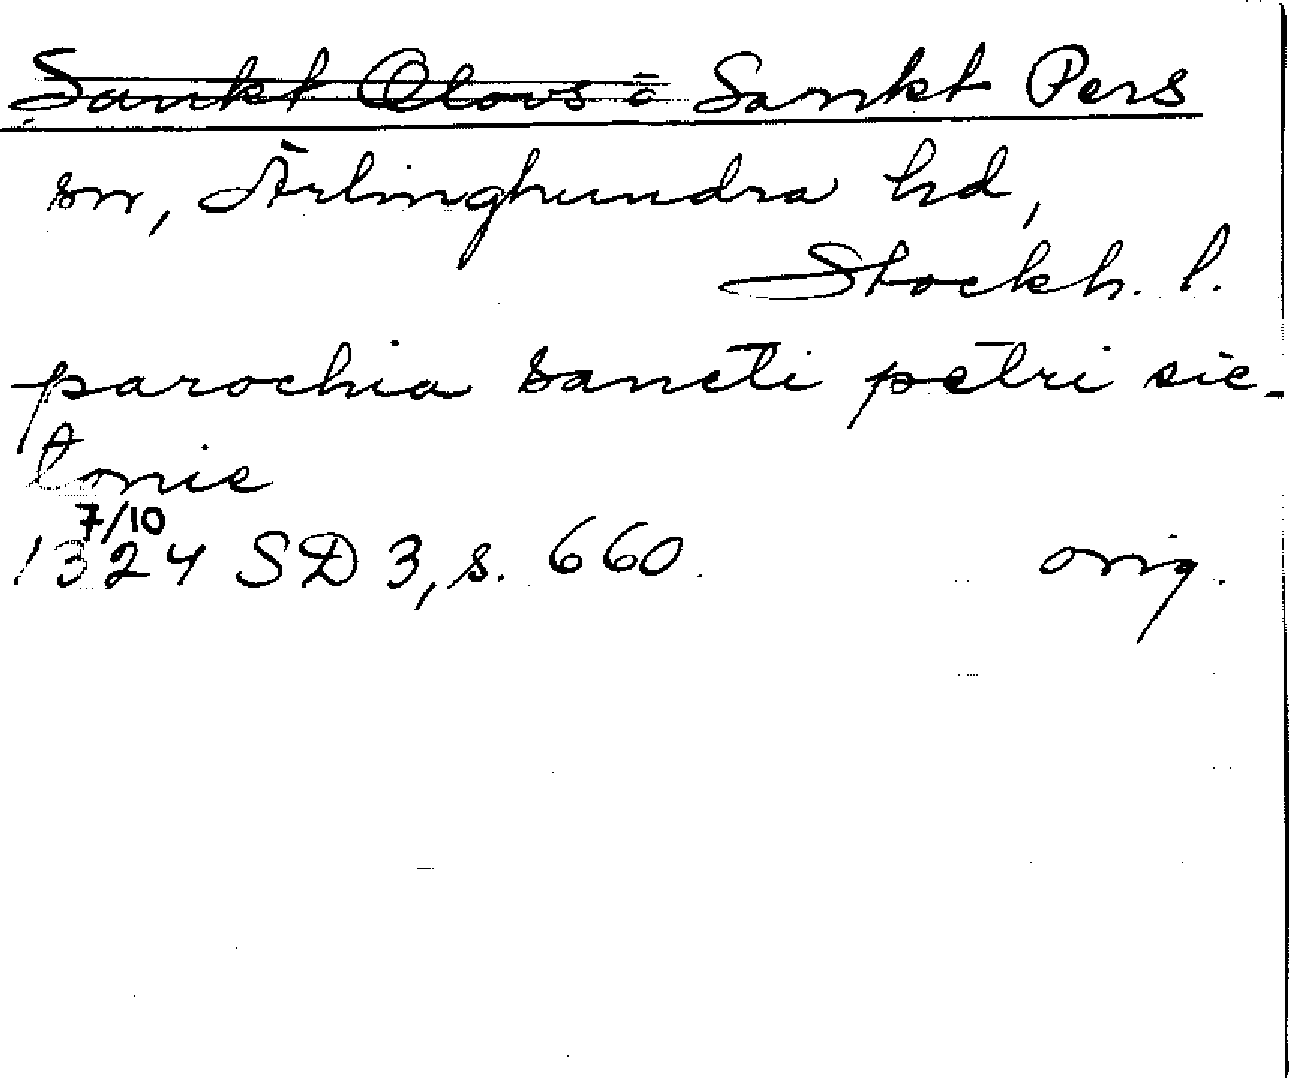 Sankt Olovs o Sankt Pers
sn, Ärlinghundra hd,
Stockh. l.
parochia sancti petri sic-
tonie
7/10
1324 SD 3, s. 660. orig.